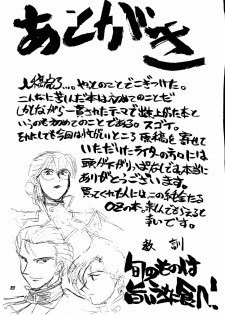 あとがき
入稿完了…。やっとのことでこぎつけた。
こんなに苦しんだ本は初めてのことだ
しかしながら一貫されたテーマで出き上がった本と
いうのも初めてのことである。スゴイ。
それにしても今回は忙がしいところ原稿を寄せて
いただいたライターの方々には
頭が下がりっぱなしです。本当に
ありがとうございます。
買ってくれた人には、この純然たる
OZの本、楽しんでもらえると
幸いです。
教訓
旬のものは
旨いうちに食べ!